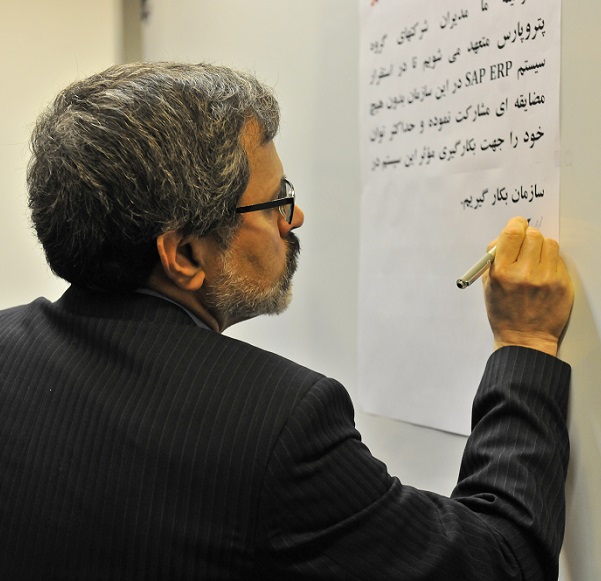 ما مدیران شرکتهای گروه
پتروپارس متعهد می شویم تا در استقرار
سیستم SAP ERP در این سازمان بدون هیچ
مضایقه ای مشارکت نموده و حداکثر توان
خود را جهت بکارگیری مؤثر این سیستم در
سازمان بکار گیریم.